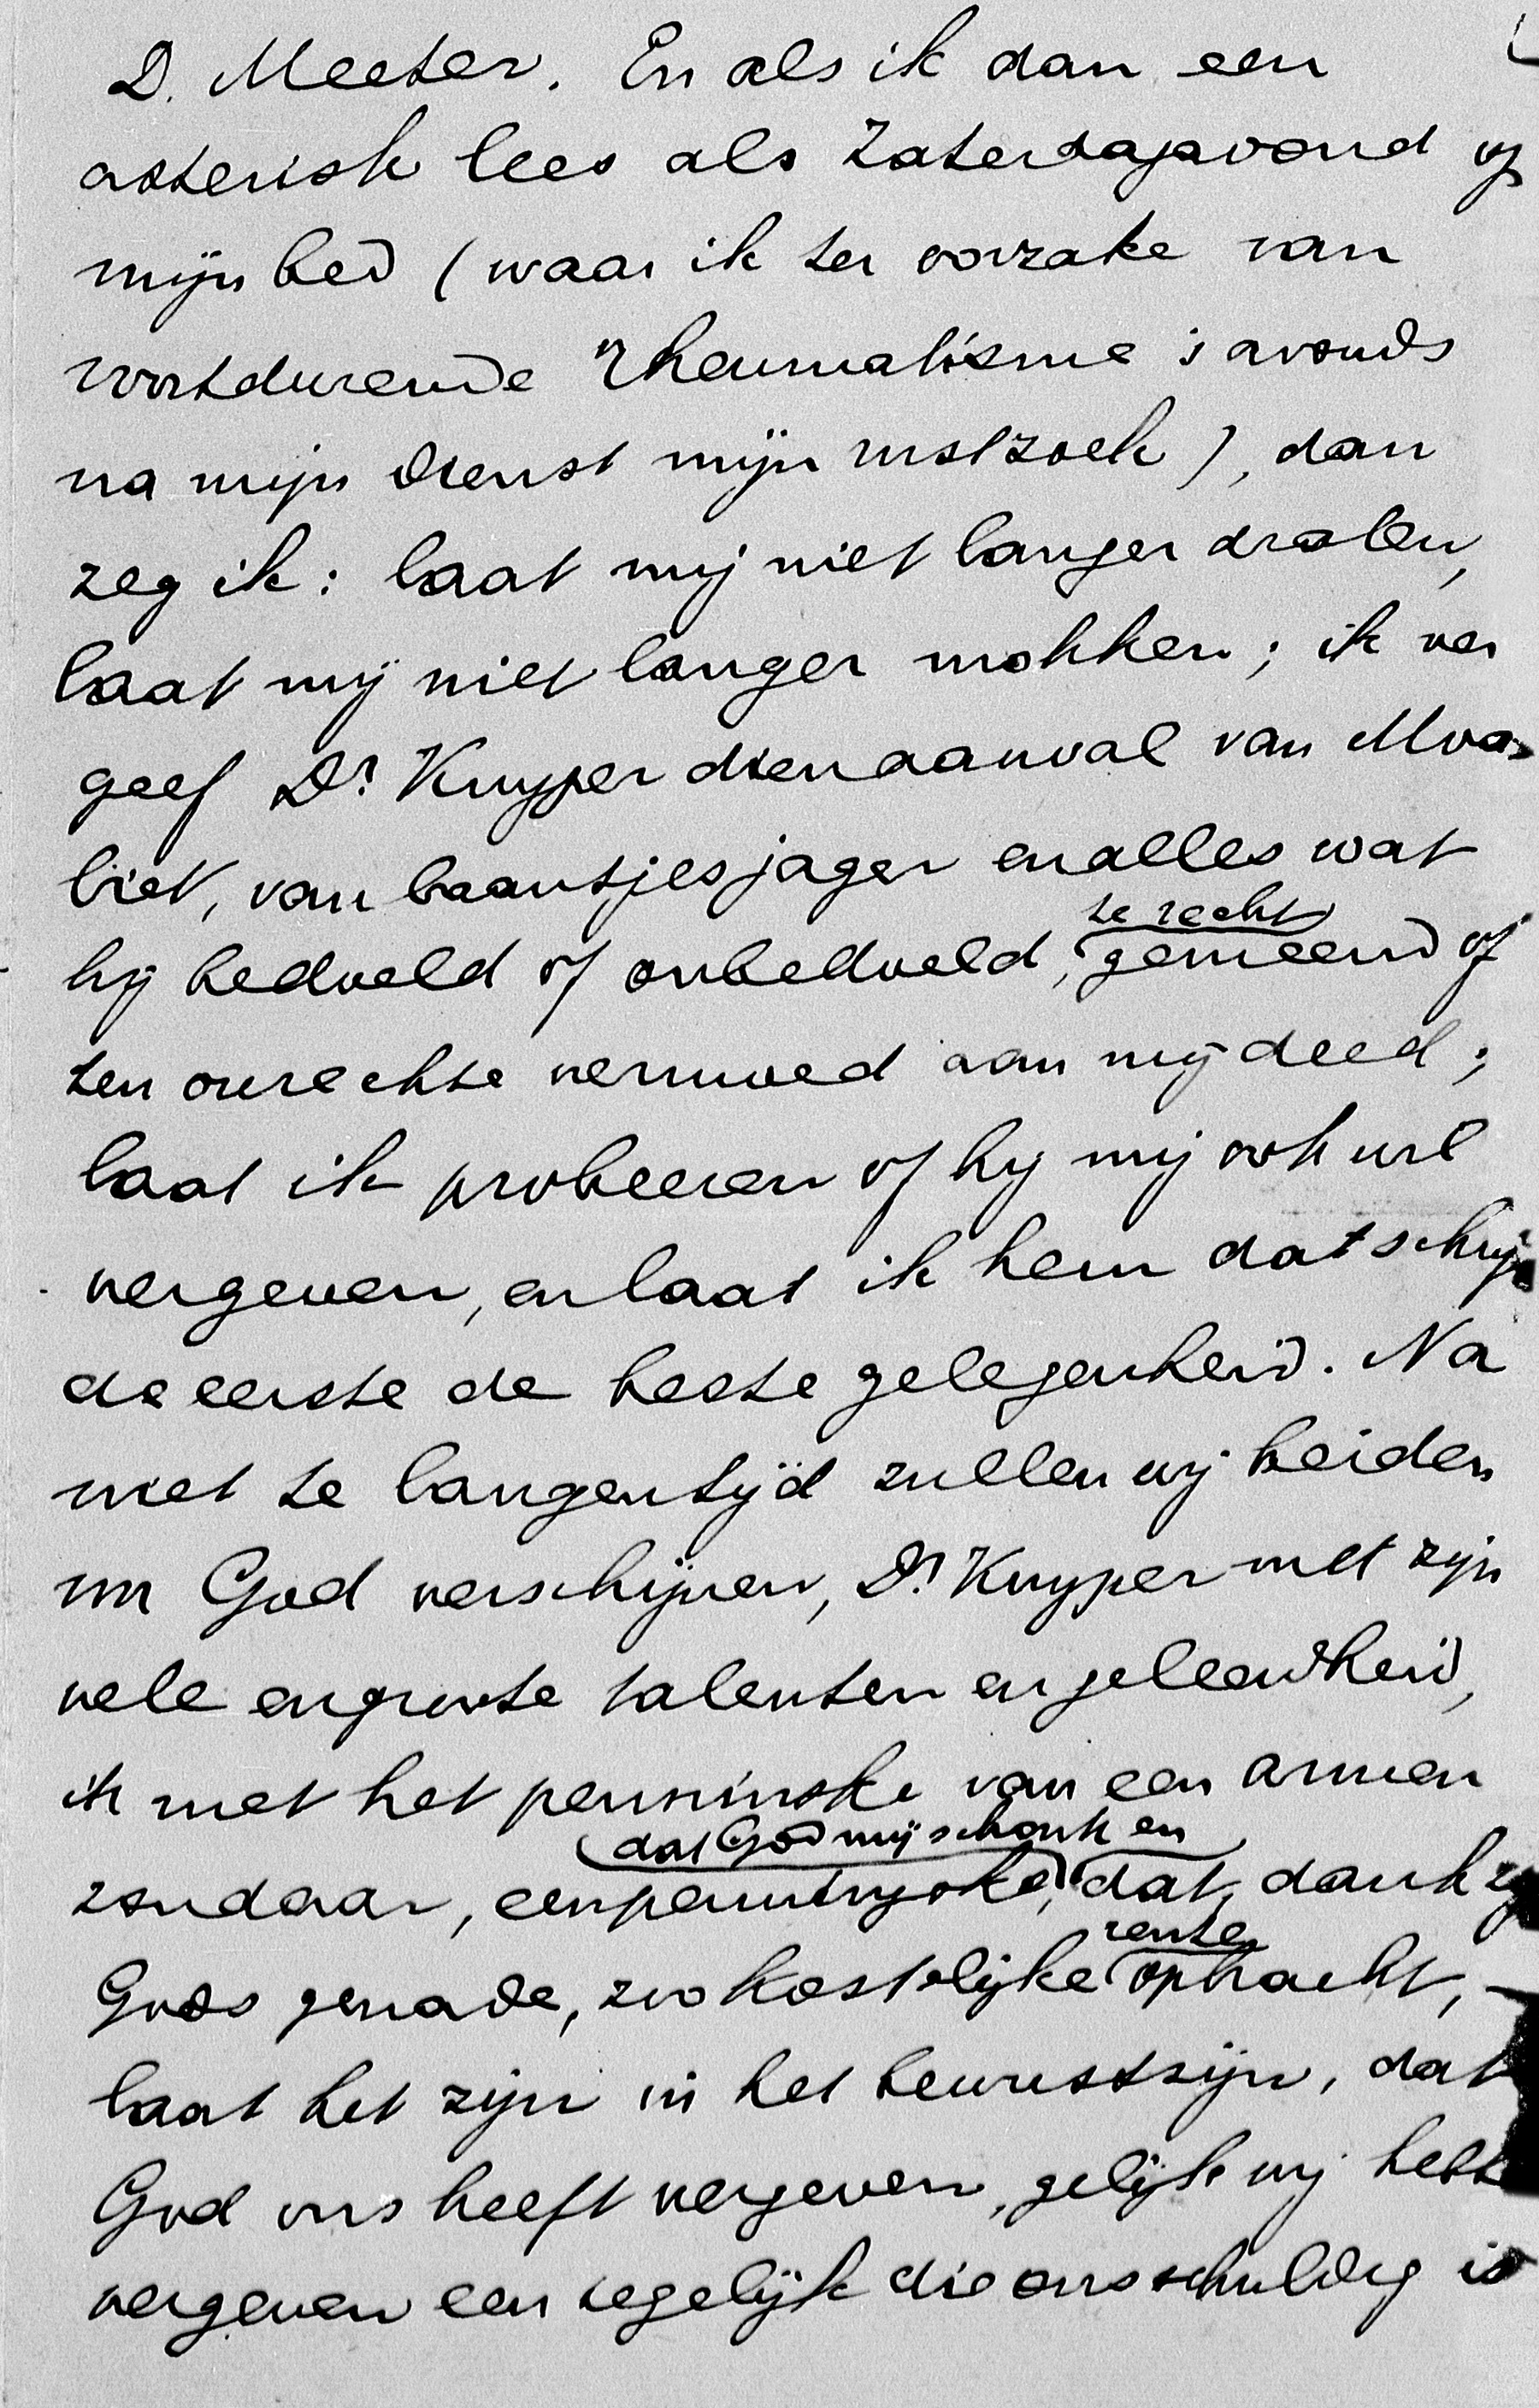 D. Meeter. En als ik dan een
asterisk lees als Zaterdagavond op
mijn bed (waar ik ter oorzake van
voortdurende rheumatisme 's avonds
na mijn dienst mijn rust zoek), dan
zeg ik: laat mij niet langer dralen,
laat mij niet langer mokken; ik ver
geef Dr Kuyper dien aanval van
van baantjesjager en alles wat
hij bedoeld of onbedoeld, te recht gemeend of
ten onrechte vermoed aan mij deed;
laat ik probeeren of hij mij ook wil
vergeven, en laat ik hem dat schrij
de eerste de beste gelegenheid. Na
niet te langen tijd zullen wij beiden
vor God verschijnen, Dr Kuyper met zijn
vele en groote talenten en geleerdheid,
ik met het penninske van een armen
zondaar, een penningske, dat God mij schonk en dat, dank zij
Gods genade, zoo kostelijke rente opbracht,
laat het zijn in het bewustzijn, dat
God ons heeft vergeven, gelijk wij hebb
vergeven een iegelijk die ons schuldig is